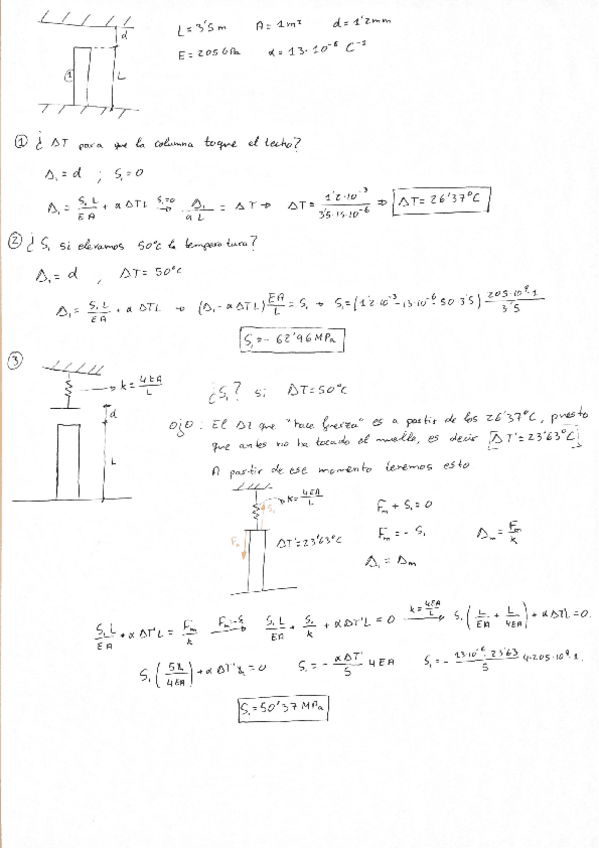 d
L = 3'5m A = 1m² d = 1'2mm
E = 205GPa α = 13·10⁻⁶ C⁻¹
① L
① ¿ ΔT para que la columna toque el techo?
Δ₁ = d ; S₁ = 0
Δ₁ = S₁L/EA + αΔTL —S₁=0→ Δ₁/αL = ΔT → ΔT = 1'2·10⁻³/3'5·13·10⁻⁶ ⇒ ΔT = 26'37°C
② ¿ S₁ si elevamos 50°C la temperatura?
Δ₁ = d , ΔT = 50°C
Δ₁ = S₁L/EA + αΔTL → (Δ₁ - αΔTL) EA/L = S₁ → S₁ = (1'2·10⁻³ - 13·10⁻⁶·50·3'5) 205·10⁹·1/3'5
S₁ = - 62'96 MPa
③
k = 4EA/L
d
L
¿S₁? si ΔT = 50°C
Ojo : El ΔT que "hace fuerza" es a partir de los 26'37°C, puesto
que antes no ha tocado el muelle, es decir [ΔT' = 23'63°C]
A partir de ese momento tenemos esto
k = 4EA/L
S₁
Fm ΔT' = 23'63°C
Fm + S₁ = 0
Fm = - S₁ Δm = Fm/k
Δ₁ = Δm
S₁L/EA + αΔT'L = Fm/k —Fm=-S₁→ S₁L/EA + S₁/k + αΔT'L = 0 —k=4EA/L→ S₁ (L/EA + L/4EA) + αΔT'L = 0.
S₁ (5L/4EA) + αΔT'L = 0 S₁ = - αΔT'/5 4EA S₁ = - 13·10⁻⁶·23'63/5 4·205·10⁹·1.
S₁ = 50'37 MPa